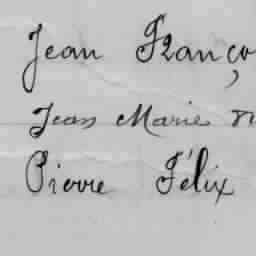 Jean Franço
Jean Marie
Pierre Félix